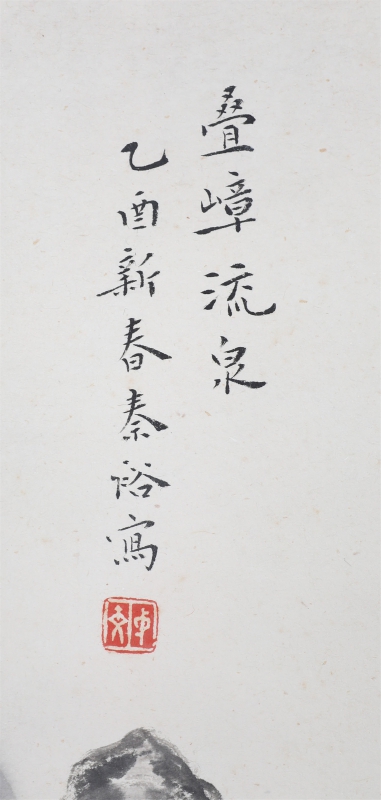 叠嶂流泉
乙酉新春秦裕寫